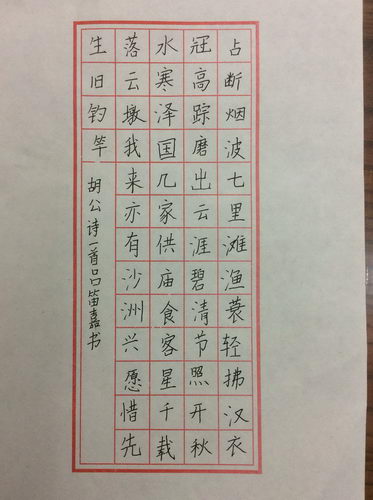 占断烟波七里滩渔蓑轻拂汉衣
冠高踪磨出云涯碧清节照开秋
水寒泽国几家供庙食客星千载
落云墩我来亦有沙洲兴愿惜先
生旧钓竿 胡公诗一首吕笛嘉书